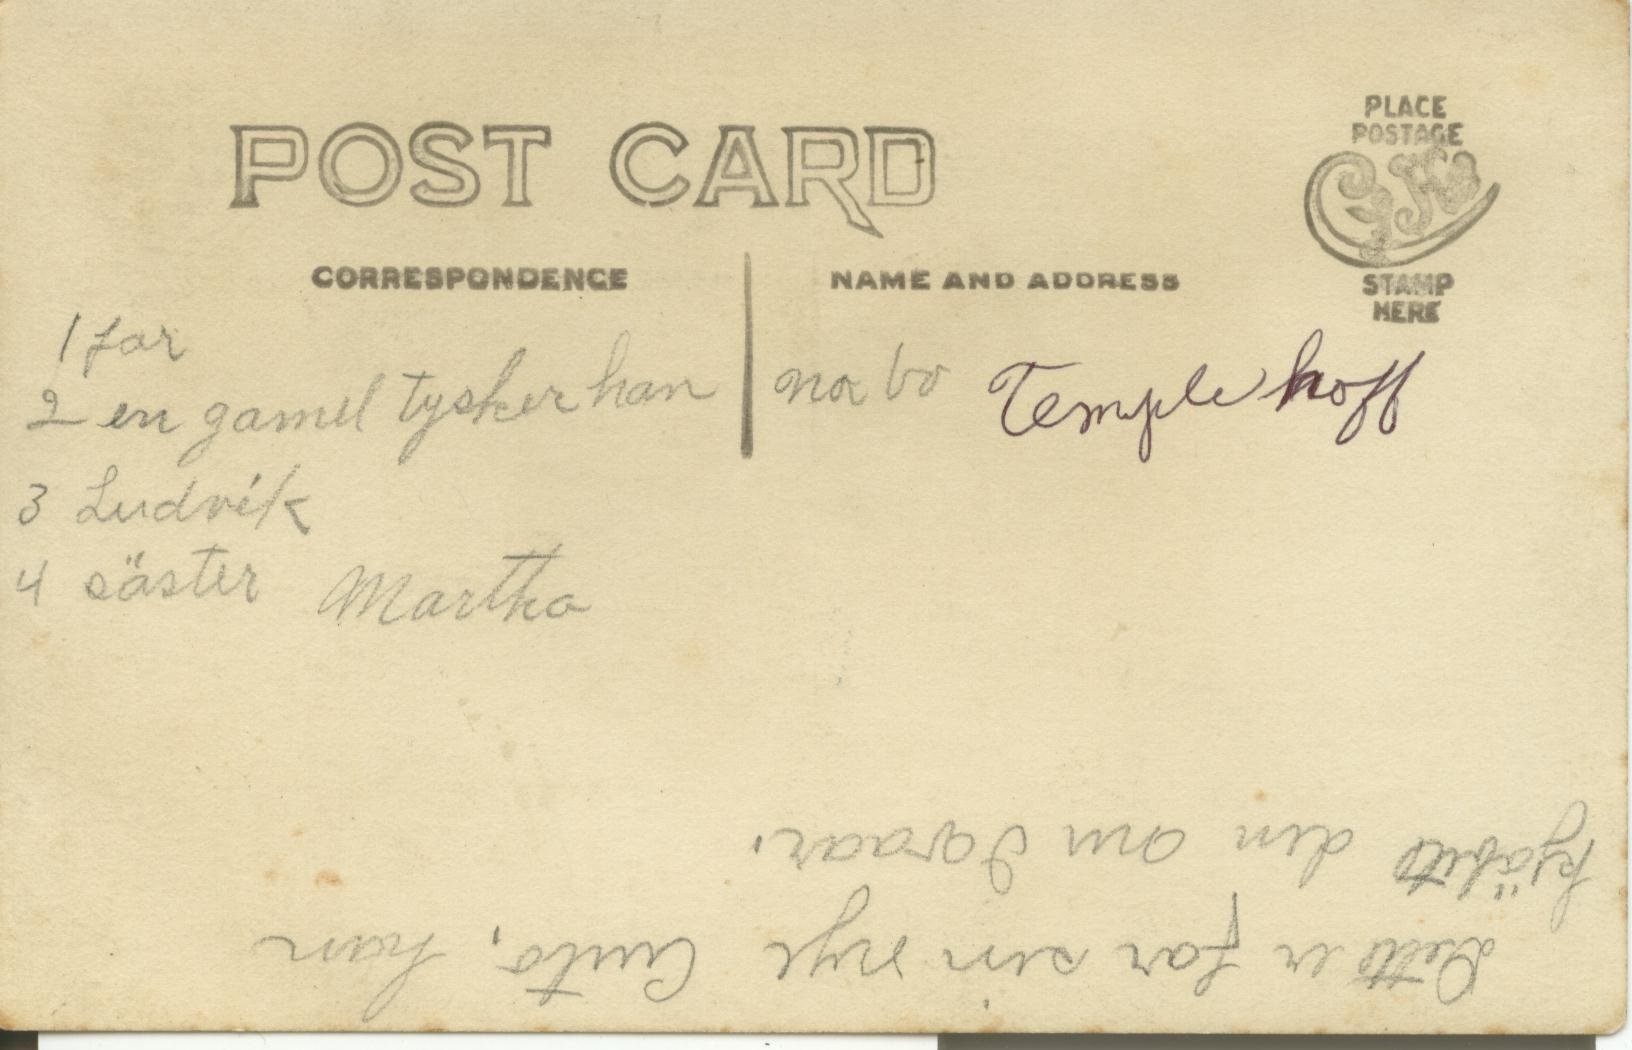 POST CARD
PLACE
POSTAGE
STAMP
HERE
CORRESPONDENCE
NAME AND ADDRESS
1 far
2 en gamel tysker han nabo Templehoff
3 Ludvik
4 säster Martha
Dette er far sin nye Auto, han
kjöbte den om Varaar.